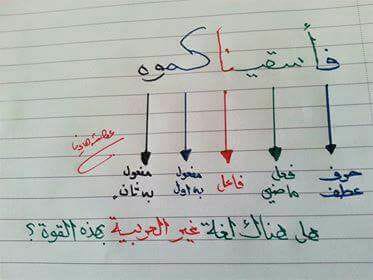 فأسقيناكموه
حرف
عطف
فعل
ماضي
فاعل
مفعول
به اول
مفعول
به ثان
هل هناك لغة غير العربية بهذه القوة ؟